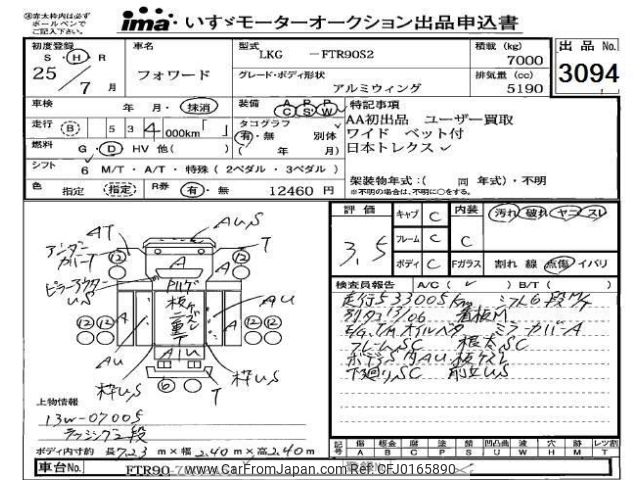 ※赤太枠内は必ず
ボールペンで
ご記入下さい。
ima いすゞモーターオークション出品申込書
初度登録 S・H・R 25/7月
車名 フォワード
型式 LKG -FTR90S2
グレード・ボディ形状 アルミウィング
積載 (kg) 7000
排気量 (cc) 5190
出品 No. 3094
車検 年 月・抹消
装備 A/C P/S P/W
特記事項
AA初出品 ユーザー買取
ワイド ベット付
日本トレクス
走行 B 534,000km「 」
タコグラフ 有・無 別体 ( 年 月)
燃料 G・D HV 他( )
シフト 6 M/T・A/T・特殊(2ペダル・3ペダル)
架装物年式:( 同 年式)・不明
※不明の場合は、不明に○をする。
色 指定 (指定) R券 有・無 12460 円
評価 3.5
キャブ C
フレーム C
ボディ C
内装 C
汚れ 破れ ヤニ スレ
Fガラス 割れ 線 点傷 イバリ
検査員報告 A/C( ✓ ) B/T( )
走行533005Km シフト6段M/T
別タコ13/06 看板M
E/G,T/Mオイルベタ ミラーカバーA
フレームSC 根太SC
下廻りSC
AT
AU,S
T
アンダーカバーT
ピラーアウターUS
A
AU
二重
枠U,S
枠U,S
T
12
12
12 12
12 12
6
上物情報
13W-07005
ラッシング2段
ボディ内寸約 長7.23m×幅2.40m×高2.40m
記号 傷 A 板金 B 腐 C 塗 P 錆 S 凹凸曲 U 波 W 穴 H 跡 M レツ割 T
車台No. FTR90-7
www.CarFromJapan.com Ref:CFJ0165890